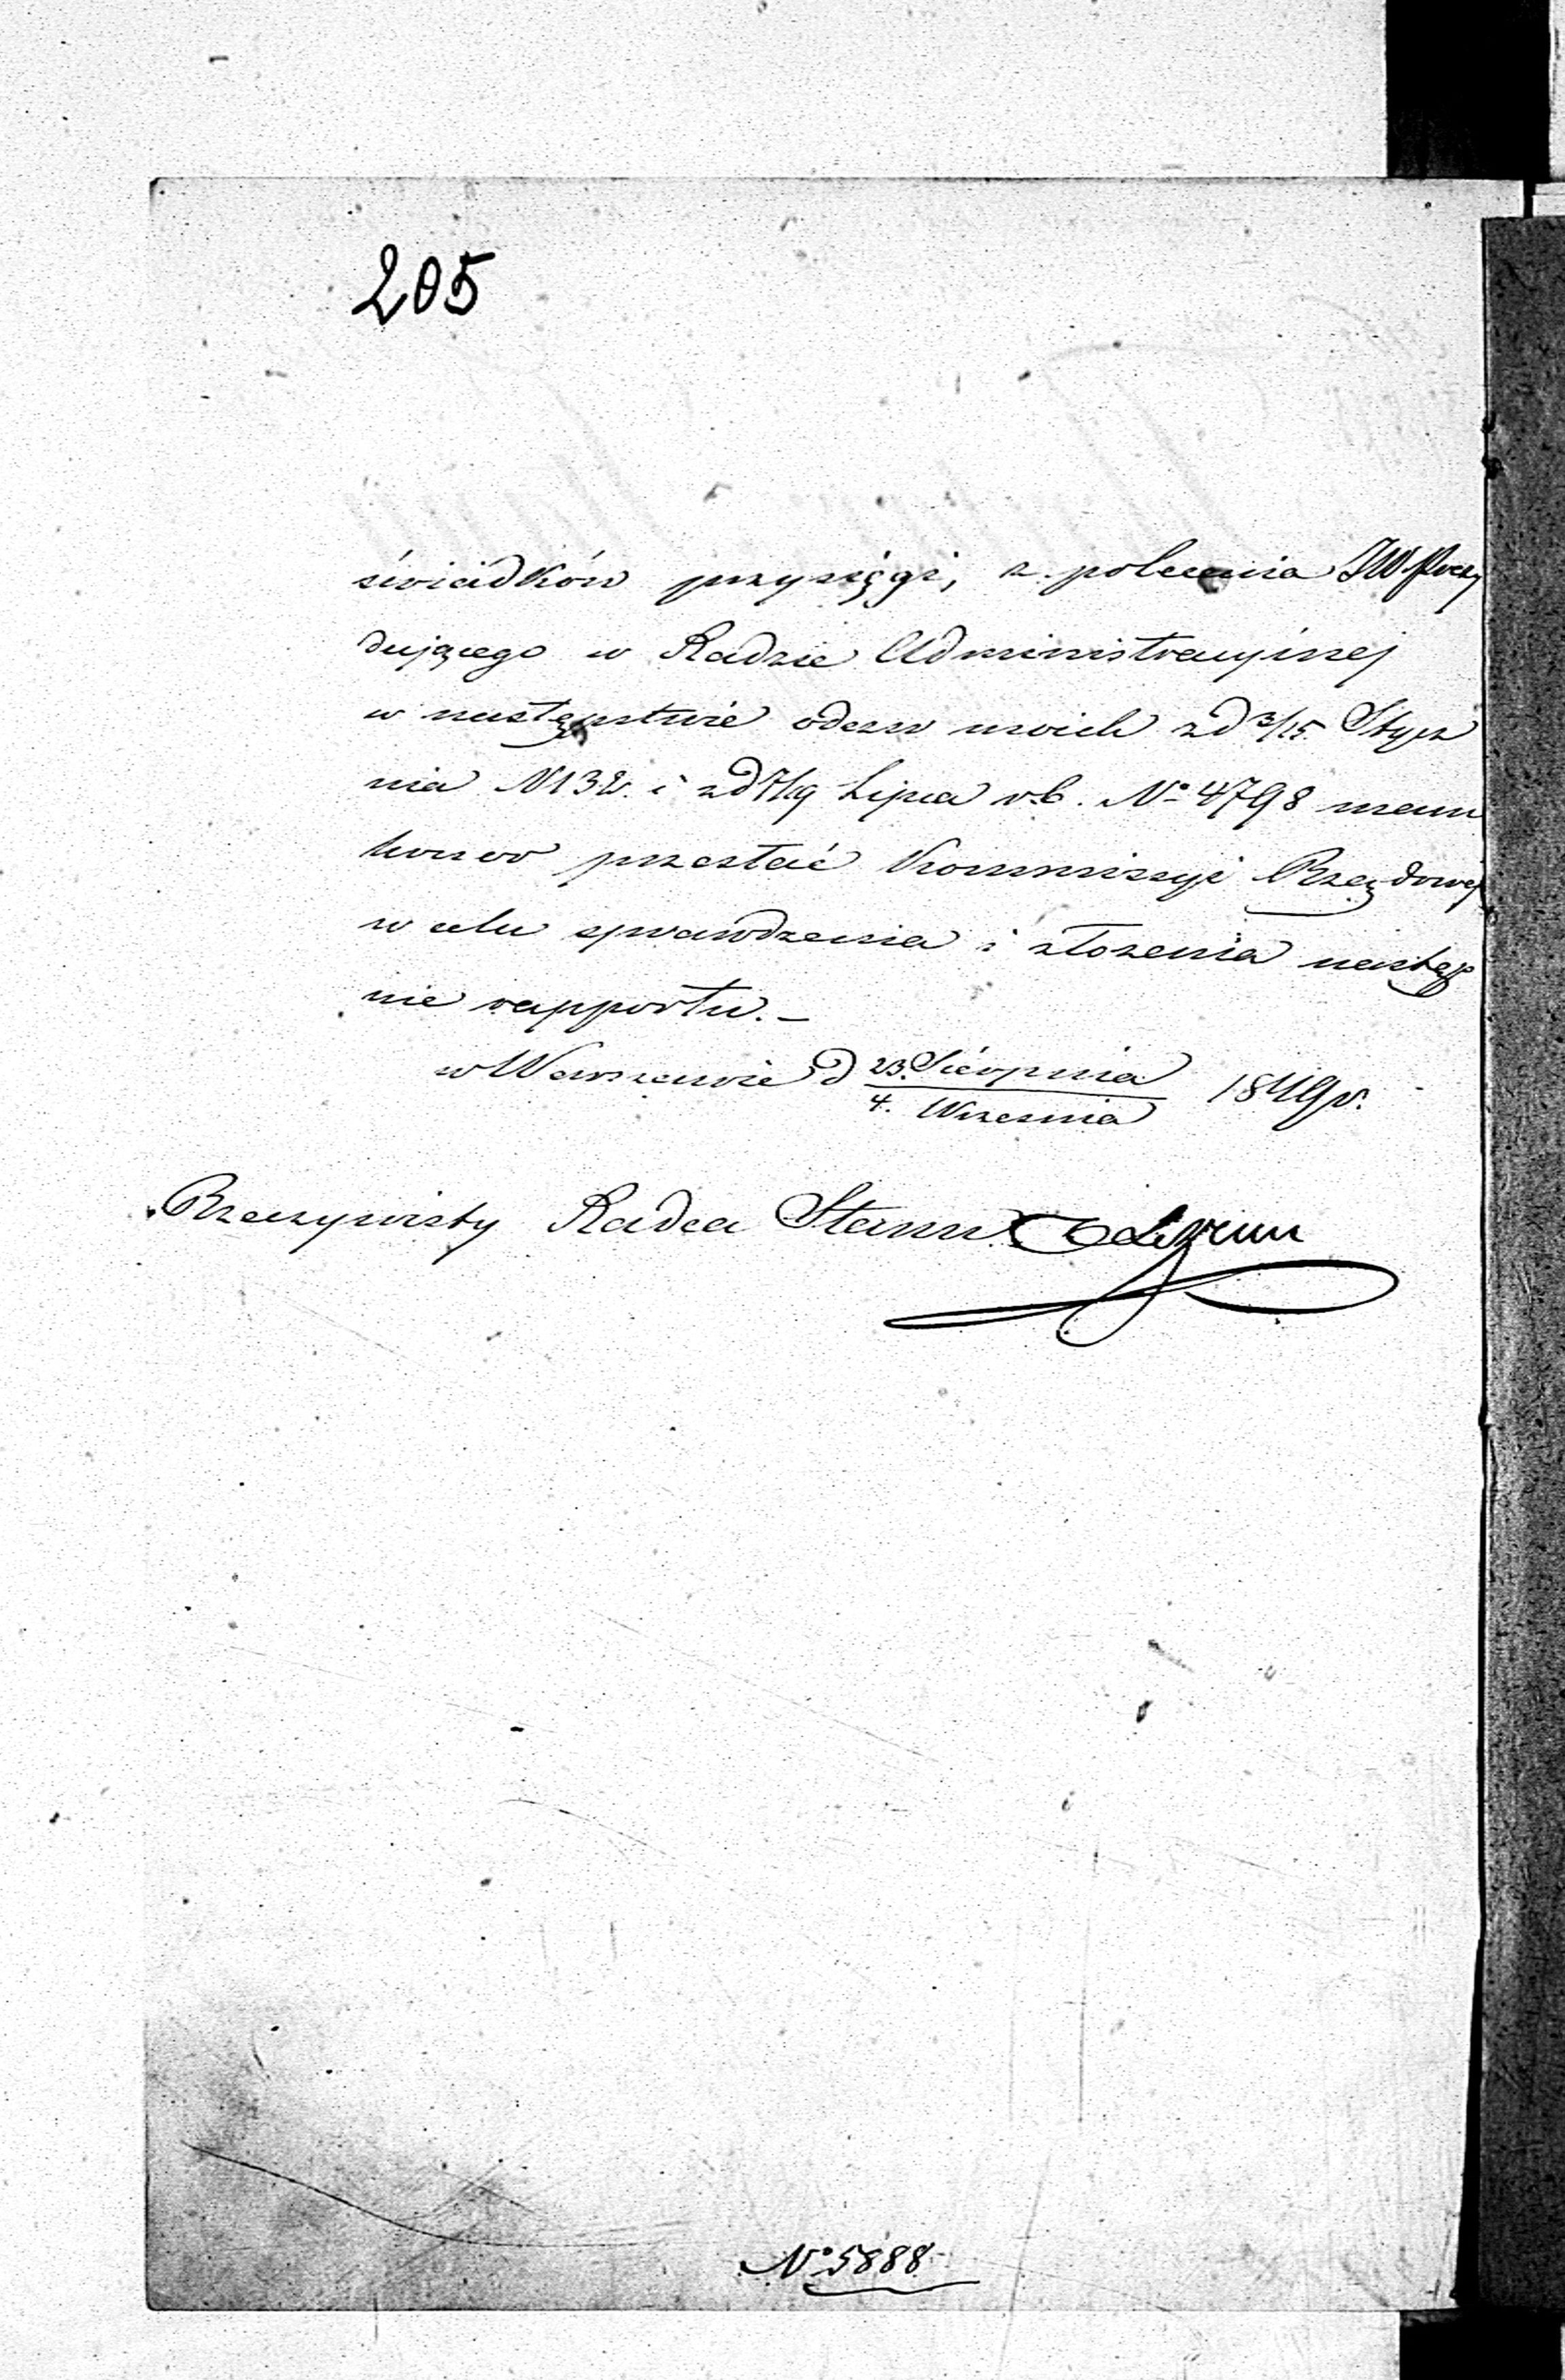 205
świadków przysięgi, z polecenia JW Prezy
dującego w Radzie Administracyjnej
w następstwie odezw swoich z d 3/15 Stycz
nia N 132. i z d 7/19 Lipca r. b. No 4798 mam
honor przesłać Kommissyi Rządowej
w celu sprawdzenia i złożenia następ
nie rapportu. –
w Warszawie d 23. Sierpnia / 4. Września 1849 r.
Rzeczywisty Radca Stanu
No 5888